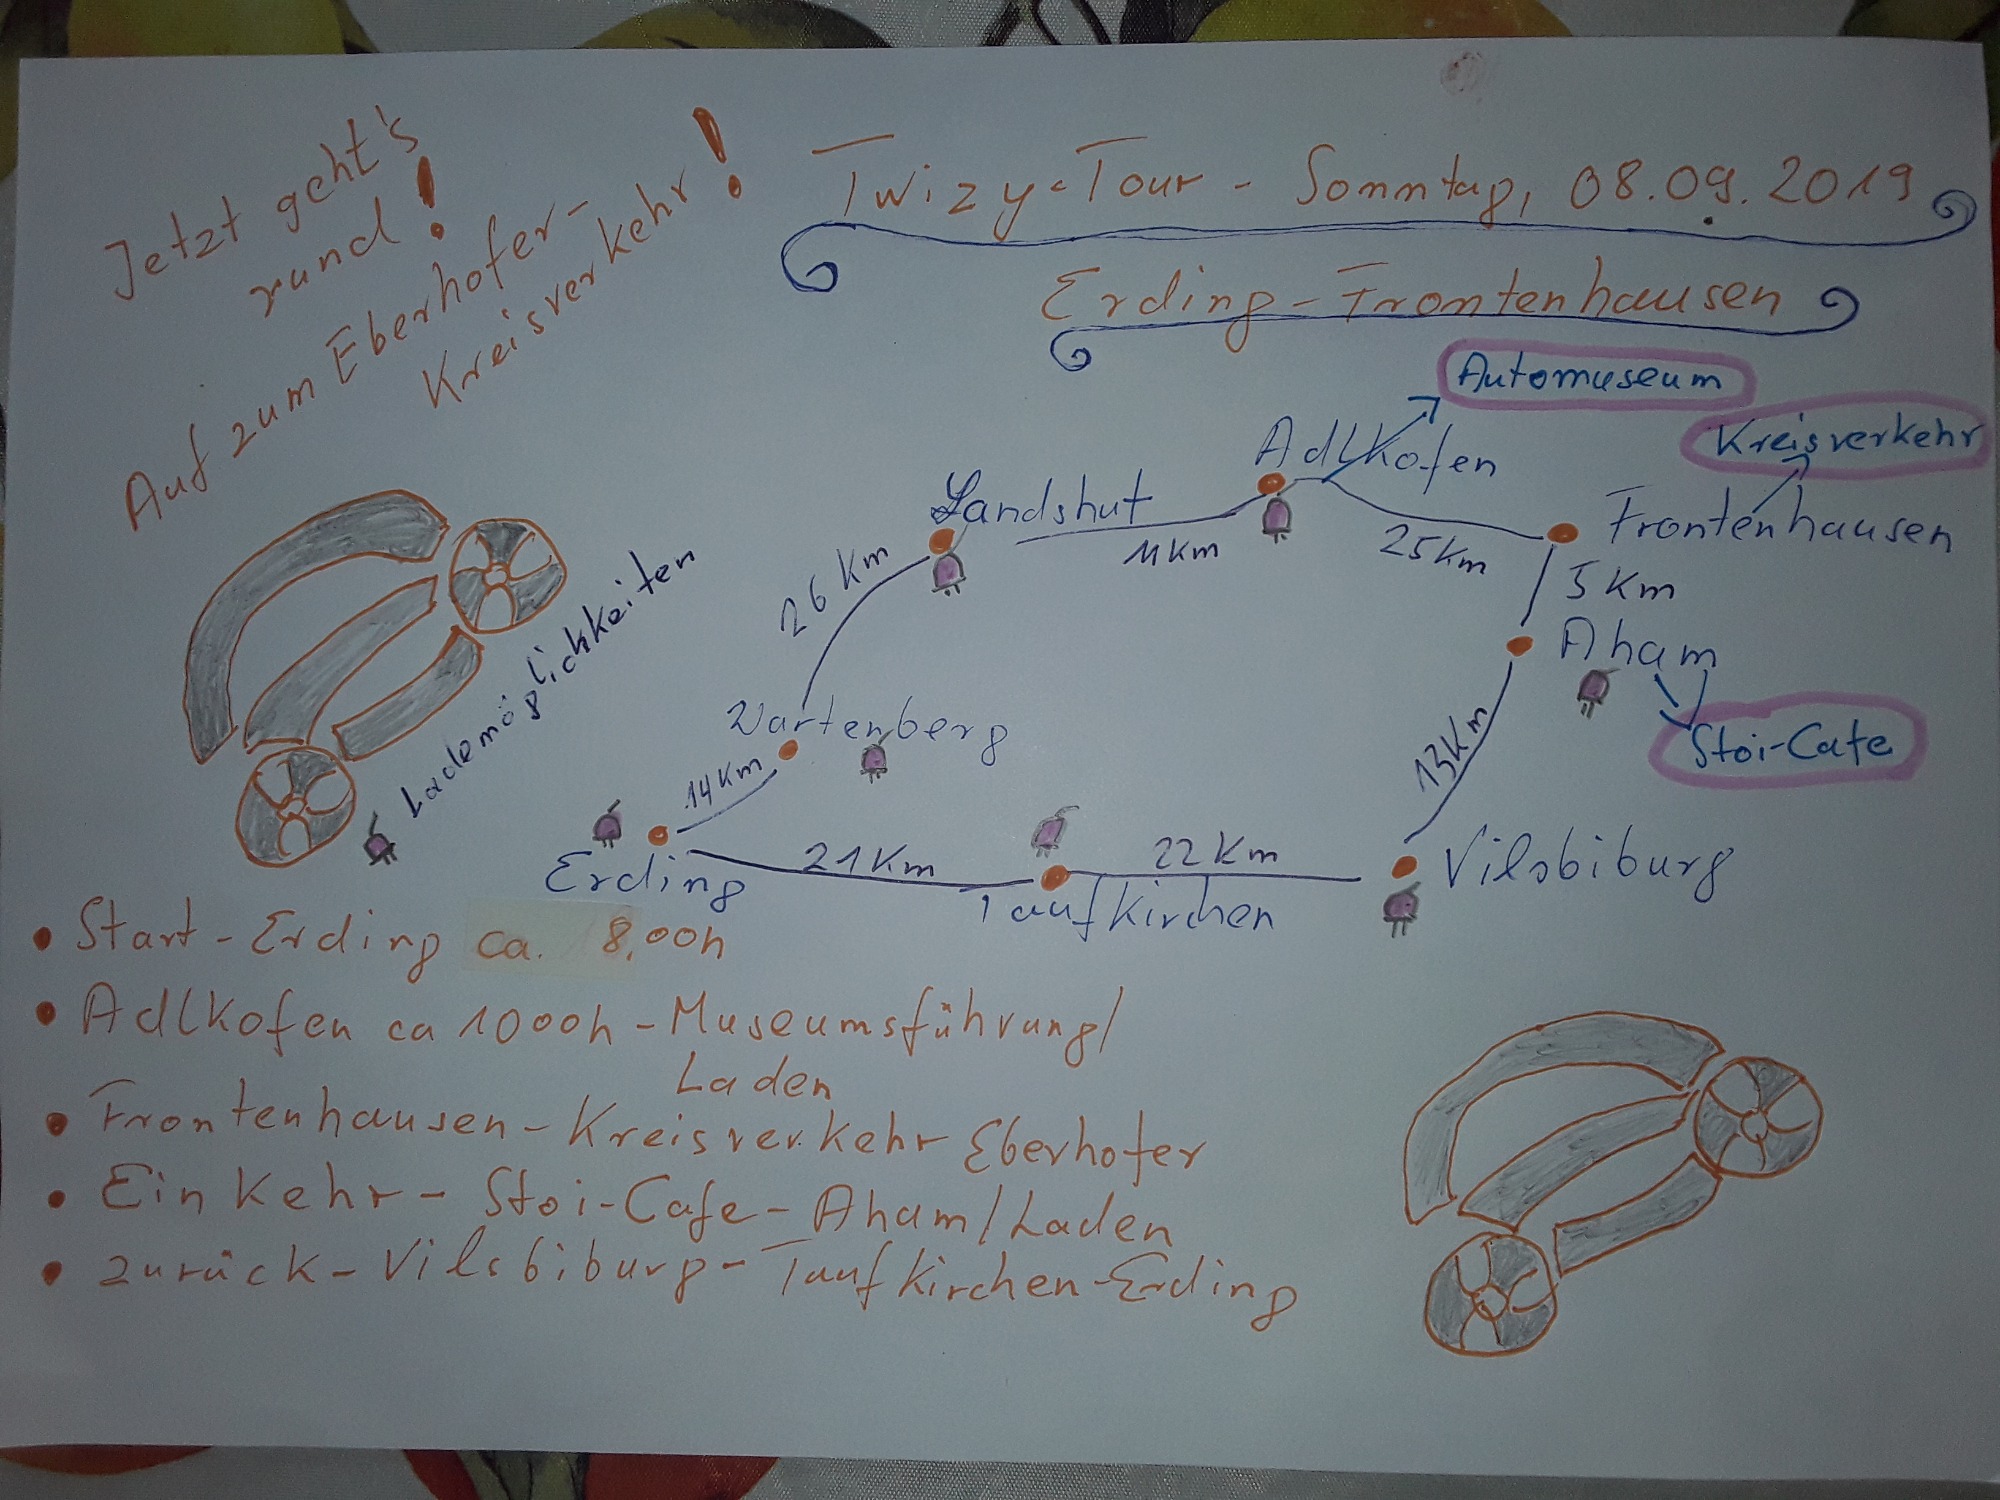 Jetzt geht's
rund!
Auf zum Eberhofer-
Kreisverkehr!
Twizy-Tour - Sonntag, 08.09.2019
Erding - Frontenhausen
Automuseum
Kreisverkehr
Adlkofen
Landshut
Frontenhausen
11 Km
25 Km
26 Km
5 Km
Aham
Lademöglichkeiten
Wartenberg
Stoi-Cafe
13 Km
14 Km
Erding
21 Km
Taufkirchen
22 Km
Vilsbiburg
• Start - Erding ca. 8.00h
• Adlkofen ca 1000h - Museumsführung/
Laden
• Frontenhausen - Kreisverkehr Eberhofer
• Einkehr - Stoi-Cafe - Aham/Laden
• zurück - Vilsbiburg - Taufkirchen - Erding